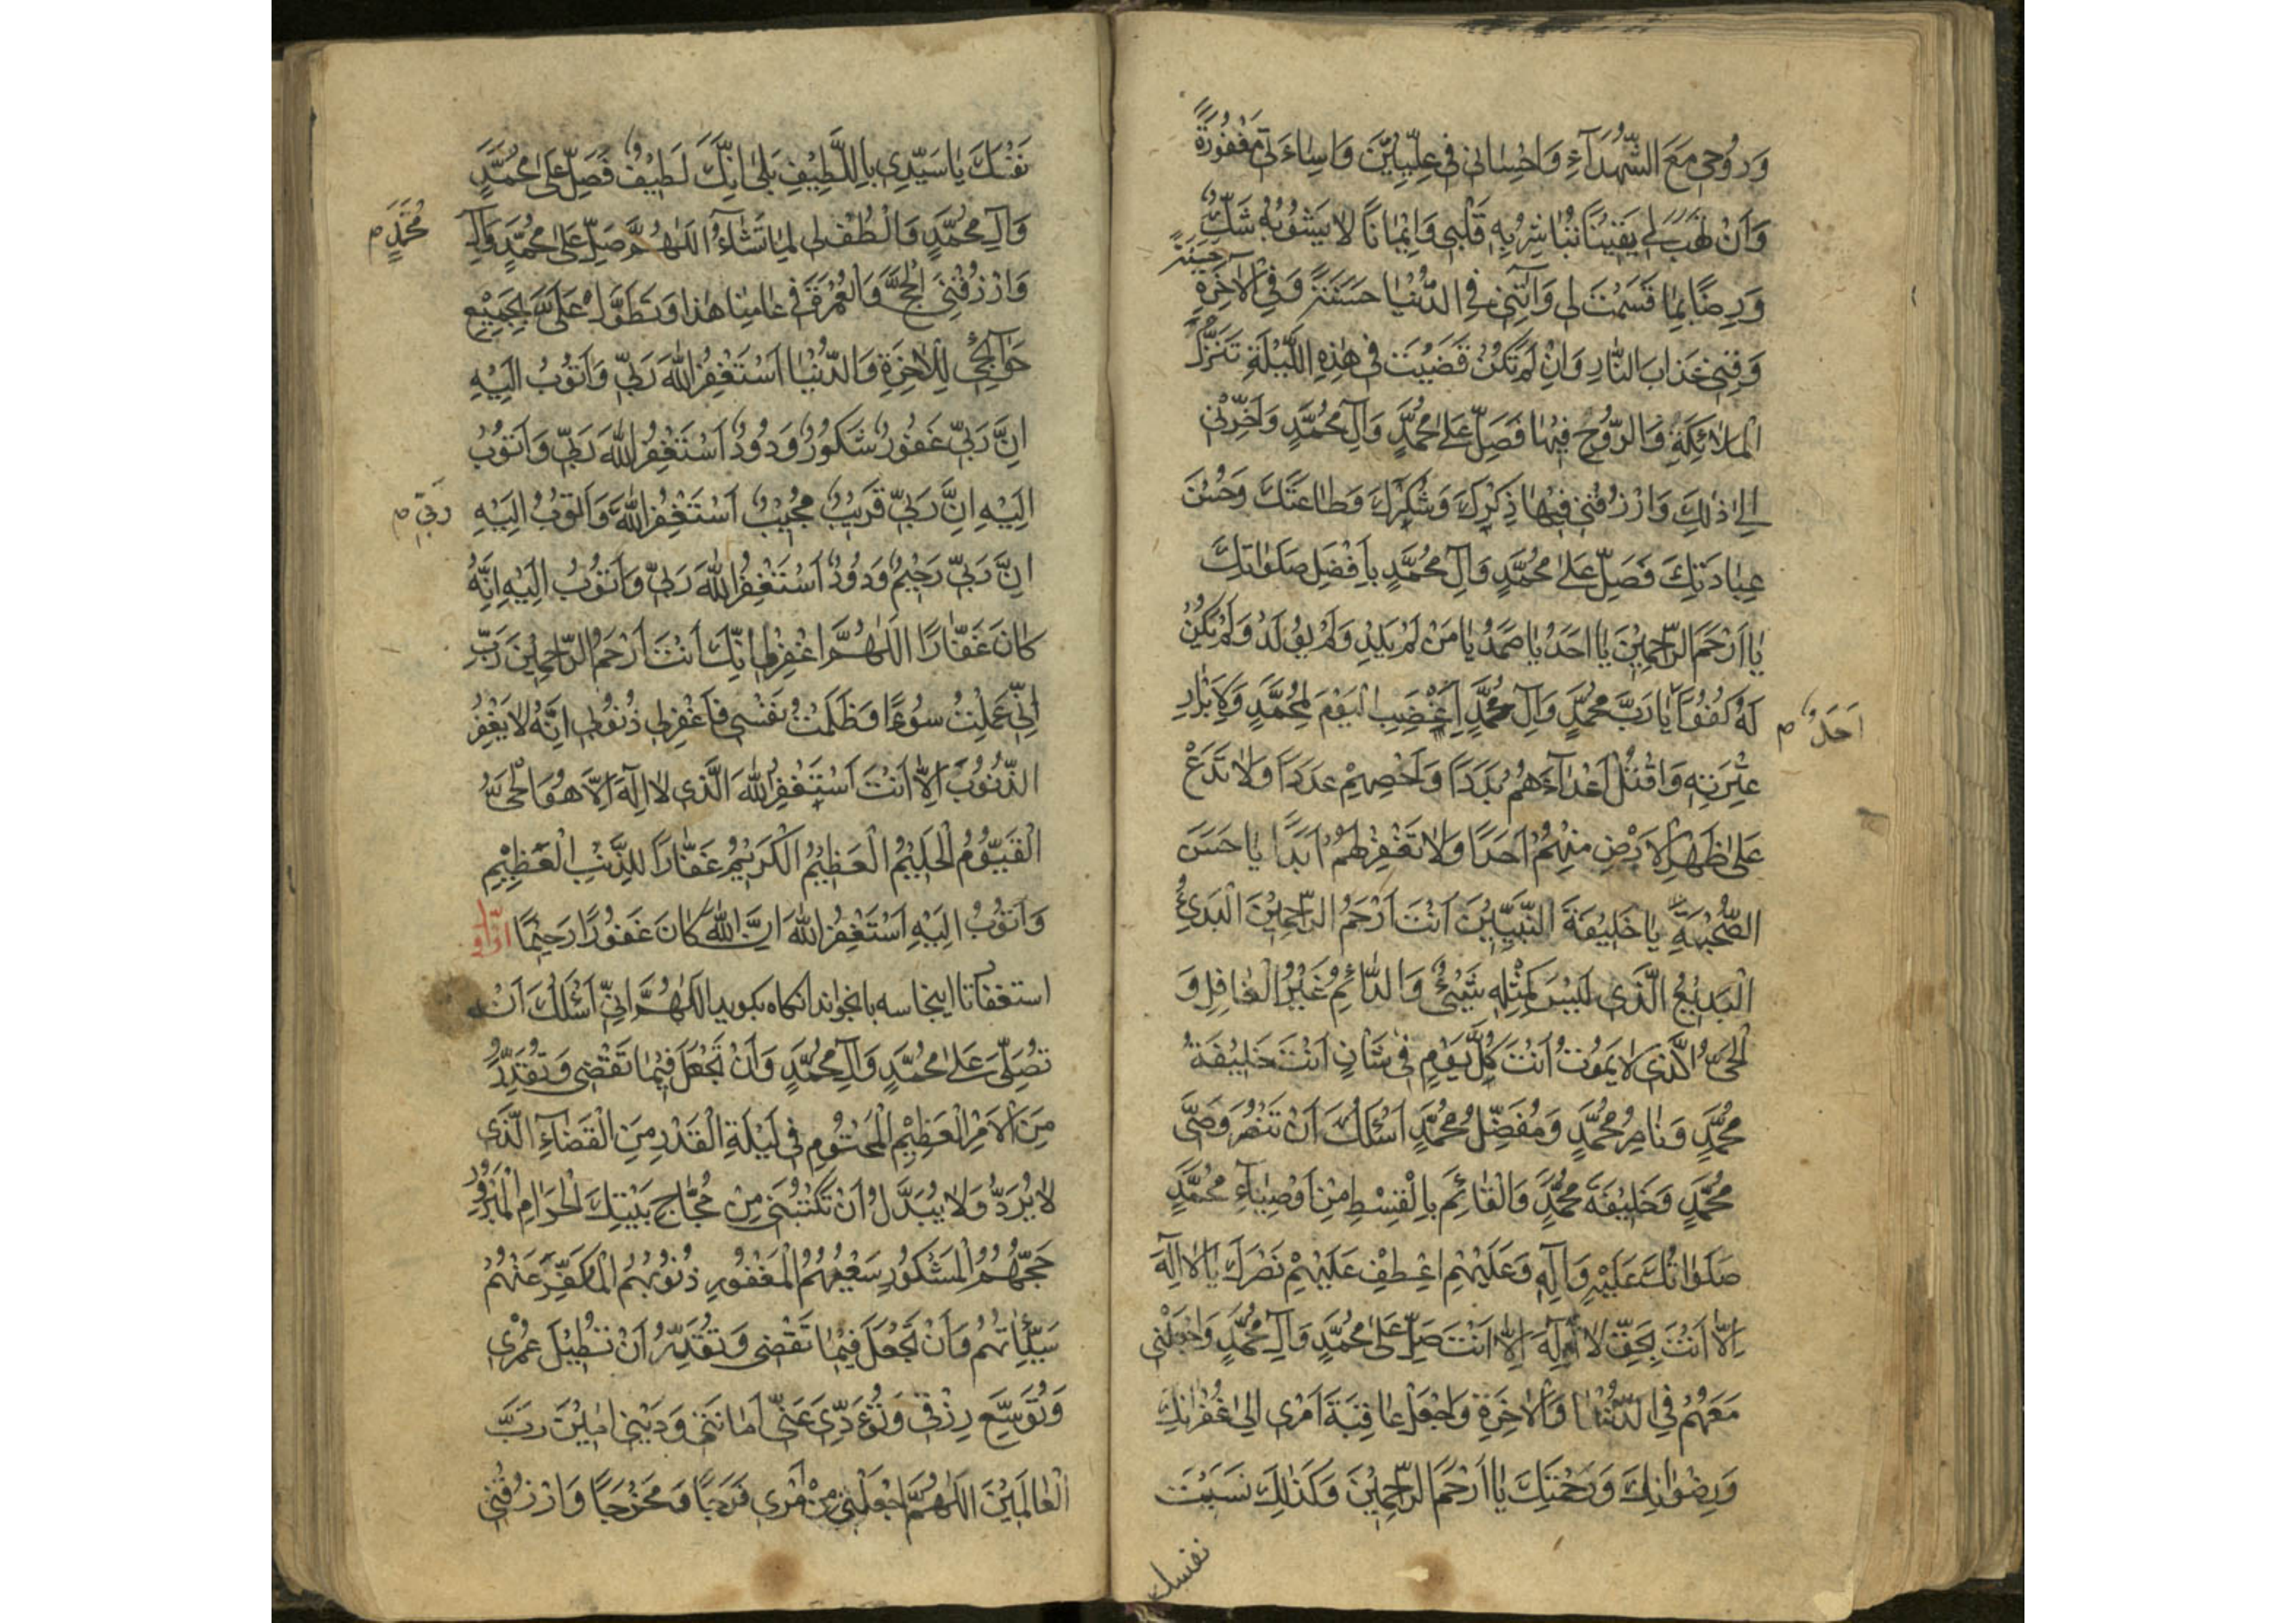 وَرُوحِي مَعَ الشُّهَدَآءِ وَاِحْسَانِي فِي عِلِّيِّينَ وَاِسَاءَتِي مَغْفُورَةً
وَاَنْ تَهَبَ لِي يَقِينًا تُبَاشِرُ بِهِ قَلْبِي وَاِيمَانًا لَا يَشُوبُهُ شَكٌّ
وَرِضًا بِمَا قَسَمْتَ لِي وَآتِنِي فِي الدُّنْيَا حَسَنَةً وَفِي الْآخِرَةِ
حَسَنَةً
وَقِنِي عَذَابَ النَّارِ وَاِنْ لَمْ تَكُنْ قَضَيْتَ فِي هٰذِهِ اللَّيْلَةِ تَنَزُّلَ
الْمَلَائِكَةِ وَالرُّوحِ فِيهَا فَصَلِّ عَلَى مُحَمَّدٍ وَآلِ مُحَمَّدٍ وَاَخِّرْنِي
اِلَى ذٰلِكَ وَارْزُقْنِي فِيهَا ذِكْرَكَ وَشُكْرَكَ وَطَاعَتَكَ وَحُسْنَ
عِبَادَتِكَ فَصَلِّ عَلَى مُحَمَّدٍ وَآلِ مُحَمَّدٍ بِاَفْضَلِ صَلَوَاتِكَ
يَا اَرْحَمَ الرَّاحِمِينَ يَا اَحَدُ يَا صَمَدُ يَا مَنْ لَمْ يَلِدْ وَلَمْ يُولَدْ وَلَمْ يَكُنْ
لَهُ كُفُوًا يَا رَبَّ مُحَمَّدٍ وَآلِ مُحَمَّدٍ اِغْضَبِ الْيَوْمَ لِمُحَمَّدٍ وَلِاَبْرَارِ
اَحَدٌ م
عِتْرَتِهِ وَاقْتُلْ اَعْدَآءَهُمْ بَدَدًا وَاَحْصِهِمْ عَدَدًا وَلَا تَدَعْ
عَلَى ظَهْرِ الْاَرْضِ مِنْهُمْ اَحَدًا وَلَا تَغْفِرْ لَهُمْ اَبَدًا يَا حَسَنَ
الصُّحْبَةِ يَا خَلِيفَةَ النَّبِيِّينَ اَنْتَ اَرْحَمُ الرَّاحِمِينَ الْبَدِيءُ
الْبَدِيعُ الَّذِي لَيْسَ كَمِثْلِهِ شَيْءٌ وَالدَّائِمُ غَيْرُ الْغَافِلِ وَ
الْحَيُّ الَّذِي لَا يَمُوتُ اَنْتَ كُلَّ يَوْمٍ فِي شَأْنٍ اَنْتَ خَلِيفَةُ
مُحَمَّدٍ وَنَاصِرُ مُحَمَّدٍ وَمُفَضِّلُ مُحَمَّدٍ اَسْئَلُكَ اَنْ تَنْصُرَ وَصِيَّ
مُحَمَّدٍ وَخَلِيفَةَ مُحَمَّدٍ وَالْقَائِمَ بِالْقِسْطِ مِنْ اَوْصِيَآءِ مُحَمَّدٍ
صَلَوَاتُكَ عَلَيْهِ وَآلِهِ وَعَلَيْهِمْ اعْطِفْ عَلَيْهِمْ نَصْرَكَ يَا لَا اِلٰهَ
اِلَّا اَنْتَ بِحَقِّ لَا اِلٰهَ اِلَّا اَنْتَ صَلِّ عَلَى مُحَمَّدٍ وَآلِ مُحَمَّدٍ وَاجْعَلْنِي
مَعَهُمْ فِي الدُّنْيَا وَالْآخِرَةِ وَاجْعَلْ عَاقِبَةَ اَمْرِي اِلَى غُفْرَانِكَ
وَرِضْوَانِكَ وَرَحْمَتِكَ يَا اَرْحَمَ الرَّاحِمِينَ وَكَذٰلِكَ نَسَبْتَ
نفسك
نَفْسَكَ يَا سَيِّدِي بِاللَّطِيفِ بَلَى اِنَّكَ لَطِيفٌ فَصَلِّ عَلَى مُحَمَّدٍ
وَآلِ مُحَمَّدٍ وَالْطُفْ لِي لِمَا تَشَآءُ اَللّٰهُمَّ صَلِّ عَلَى مُحَمَّدٍ وَآلِ
مُحَمَّدٍ م
وَارْزُقْنِي الْحَجَّ وَالْعُمْرَةَ فِي عَامِنَا هٰذَا وَتَطَوَّلْ عَلَيَّ بِجَمِيعِ
حَوَآئِجِي لِلْآخِرَةِ وَالدُّنْيَا اَسْتَغْفِرُ اللّٰهَ رَبِّي وَاَتُوبُ اِلَيْهِ
اِنَّ رَبِّي غَفُورٌ شَكُورٌ وَدُودٌ اَسْتَغْفِرُ اللّٰهَ رَبِّي وَاَتُوبُ
اِلَيْهِ اِنَّ رَبِّي قَرِيبٌ مُجِيبٌ اَسْتَغْفِرُ اللّٰهَ وَاَتُوبُ اِلَيْهِ
رَبِّي م
اِنَّ رَبِّي رَحِيمٌ وَدُودٌ اَسْتَغْفِرُ اللّٰهَ رَبِّي وَاَتُوبُ اِلَيْهِ اِنَّهُ
كَانَ غَفَّارًا اَللّٰهُمَّ اغْفِرْ لِي اِنَّكَ اَنْتَ اَرْحَمُ الرَّاحِمِينَ رَبِّ
اِنِّي عَمِلْتُ سُوءًا وَظَلَمْتُ نَفْسِي فَاغْفِرْ لِي ذُنُوبِي اِنَّهُ لَا يَغْفِرُ
الذُّنُوبَ اِلَّا اَنْتَ اَسْتَغْفِرُ اللّٰهَ الَّذِي لَا اِلٰهَ اِلَّا هُوَ الْحَيُّ
الْقَيُّومُ الْحَلِيمُ الْعَظِيمُ الْكَرِيمُ غَفَّارًا لِلذَّنْبِ الْعَظِيمِ
وَاَتُوبُ اِلَيْهِ اَسْتَغْفِرُ اللّٰهَ اِنَّ اللّٰهَ كَانَ غَفُورًا رَحِيمًا
استغفار تا اینجا سه بار بخواند آنکاه بکوید اَللّٰهُمَّ اِنِّي اَسْئَلُكَ اَنْ
تُصَلِّيَ عَلَى مُحَمَّدٍ وَآلِ مُحَمَّدٍ وَاَنْ تَجْعَلَ فِيمَا تَقْضِي وَتُقَدِّرُ
مِنَ الْاَمْرِ الْعَظِيمِ الْمَحْتُومِ فِي لَيْلَةِ الْقَدْرِ مِنَ الْقَضَآءِ الَّذِي
لَا يُرَدُّ وَلَا يُبَدَّلُ اَنْ تَكْتُبَنِي مِنْ حُجَّاجِ بَيْتِكَ الْحَرَامِ الْمَبْرُورِ
حَجُّهُمُ الْمَشْكُورِ سَعْيُهُمُ الْمَغْفُورِ ذُنُوبُهُمُ الْمُكَفَّرِ عَنْهُمْ
سَيِّئَاتُهُمْ وَاَنْ تَجْعَلَ فِيمَا تَقْضِي وَتُقَدِّرُ اَنْ تُطِيلَ عُمْرِي
وَتُوَسِّعَ رِزْقِي وَتُؤَدِّيَ عَنِّي اَمَانَتِي وَدَيْنِي اٰمِينَ رَبَّ
الْعَالَمِينَ اَللّٰهُمَّ اجْعَلْ لِي مِنْ اَمْرِي فَرَجًا وَمَخْرَجًا وَارْزُقْنِي